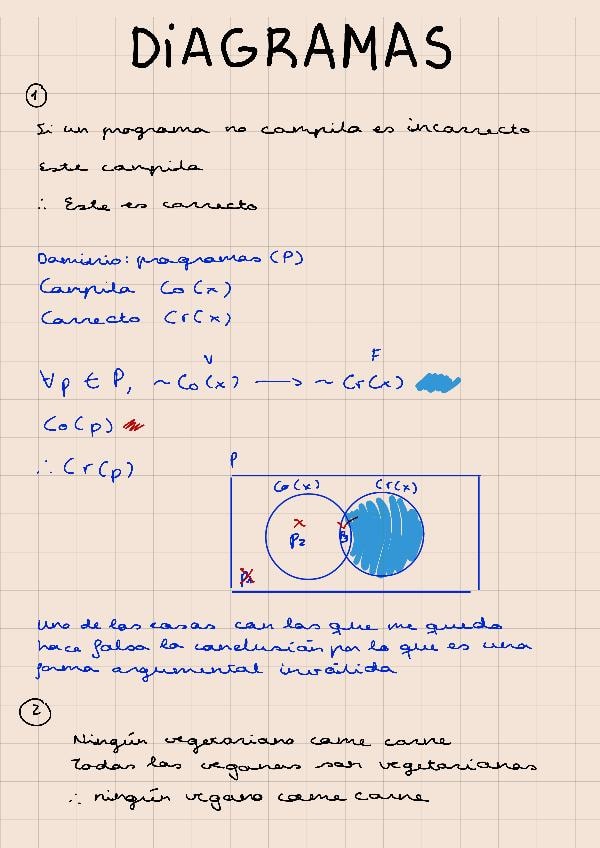 DiAGRAMAS
1
Si un programa no compila es incorrecto
Este compila
∴ Este es correcto
Dominio: programas (P)
Compila Co(x)
Correcto Cr(x)
V F
∀p ∈ P, ~Co(x) → ~Cr(x)
Co(p)
∴ Cr(p)
P
Co(x) Cr(x)
P2 P3
P1
Uno de los casos con los que me quedo
hace falsa la conclusión por lo que es una
forma argumental inválida
2
Ningún vegetariano come carne
Todos los veganos son vegetarianos
∴ ningún vegano come carne